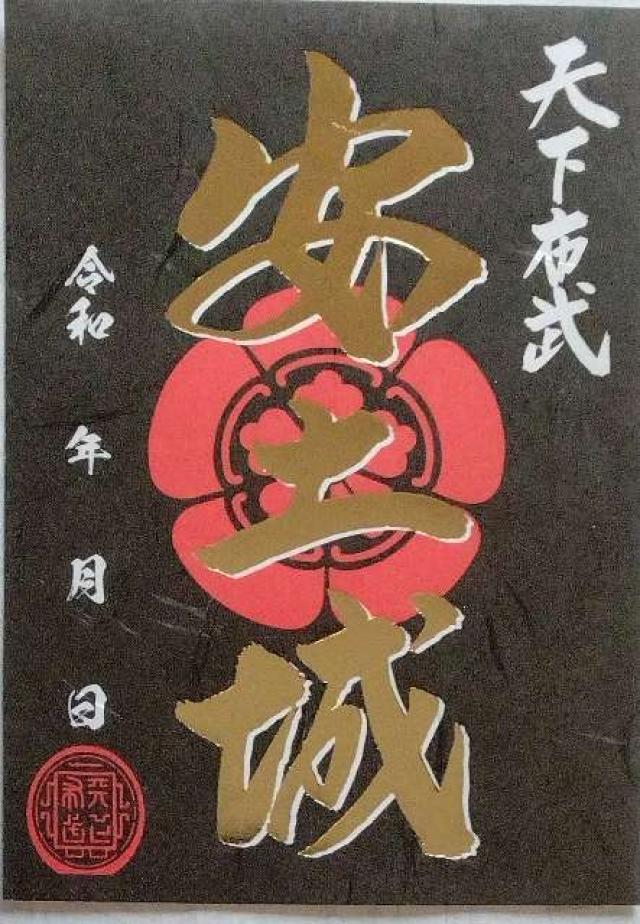 天下布武
安土城
令和 年 月 日
天下布武